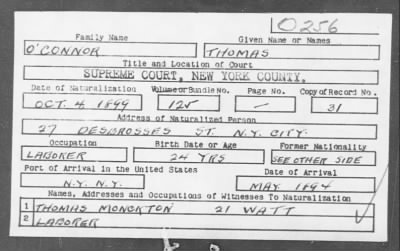 O256
Family Name Given Name or Names
O'CONNOR THOMAS
Title and Location of Court
SUPREME COURT, NEW YORK COUNTY.
Date of Naturalization Volume or Bundle No. Page No. Copy of Record No.
OCT. 4 1899 125 — 31
Address of Naturalized Person
27 DESBROSSES ST. N.Y. CITY.
Occupation Birth Date or Age Former Nationality
LABORER 24 YRS SEE OTHER SIDE
Port of Arrival in the United States Date of Arrival
N.Y. N.Y. MAY 1894
Names, Addresses and Occupations of Witnesses To Naturalization
1 THOMAS MONCKTON 21 WATT
2 LABORER